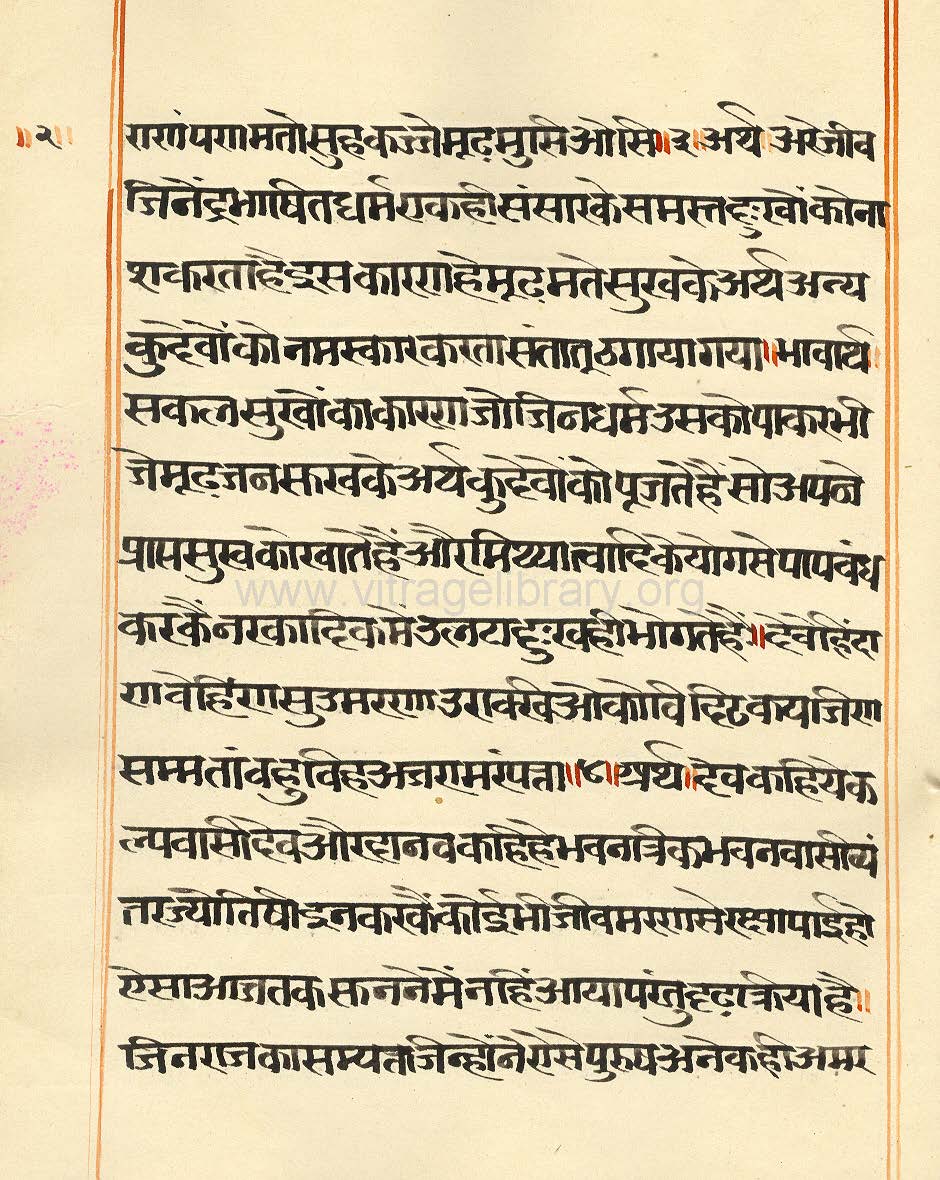 ॥२॥
राणं पणमतो सुहकज्जे मूढ मुसिओसि॥३॥अर्थ॥अरे जीव
जिनेंद्रभाषित धर्म एक ही संसार के समस्त दुःखों को ना
श करता है इस कारण हे मूढमते सुख के अर्थ अन्य
कुदेवों को नमस्कार करता संता तू ठगाया गया॥भावार्थ॥
सकल सुखों का कारण जो जिनधर्म उसको पाकर भी
जे मूढजन सुख के अर्थ कुदेवों को पूजते हैं सो अपने
प्राप्त सुख को खोते हैं और मिथ्यात्वादि के योग से पापबंध
करकैं नरकादिक में उलटा दुःख ही भोगते हैं॥देवेहिं दा
णवेहिं ण सुउ मरणाउ रक्खिओ कोवि दिढकय जिण
सम्मतां वहुविह अजरामरं पत्ता॥४॥अर्थ॥देव कहिये क
ल्पवासी देव और दानव कहि हे भवनत्रिक भवनवासी व्यं
तर ज्योतिषी इन करकैं कोई भी जीव मरण से रक्षा पाई हो
ऐसा आज तक सुनने में नहिं आया परंतु दृढ़ किया है॥
जिनराज का सम्यक्त जिन्होंने ऐसे पुरुष अनेक ही अमर
www.vitragelibrary.org